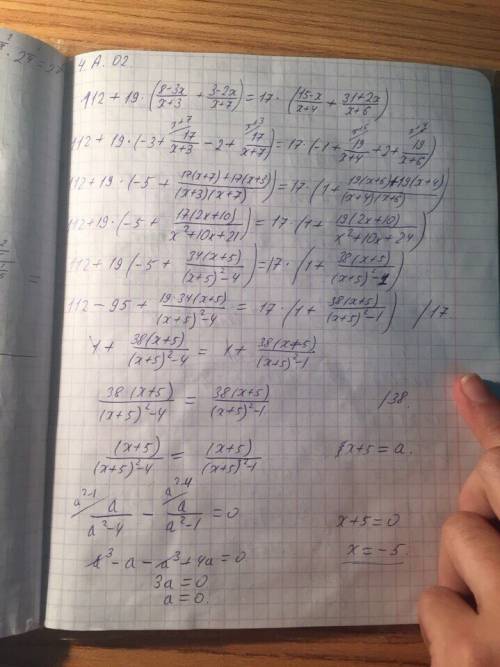 4.A.02
112 + 19·((8-3x)/(x+3) + (3-2x)/(x+7)) = 17·((15-x)/(x+4) + (31+2x)/(x+6))
112 + 19·(-3 + 17/(x+3) - 2 + 17/(x+7)) = 17·(-1 + 19/(x+4) + 2 + 19/(x+6))
112 + 19·(-5 + (17(x+7)+17(x+3))/((x+3)(x+7))) = 17·(1 + (19(x+6)+19(x+4))/((x+4)(x+6)))
112 + 19·(-5 + 17(2x+10)/(x²+10x+21)) = 17·(1 + 19(2x+10)/(x²+10x+24))
112 + 19(-5 + 34(x+5)/((x+5)²-4)) = 17·(1 + 38(x+5)/((x+5)²-1))
112 - 95 + 19·34(x+5)/((x+5)²-4) = 17·(1 + 38(x+5)/((x+5)²-1)) /17
1 + 38(x+5)/((x+5)²-4) = 1 + 38(x+5)/((x+5)²-1)
38(x+5)/((x+5)²-4) = 38(x+5)/((x+5)²-1) /38
(x+5)/((x+5)²-4) = (x+5)/((x+5)²-1) x+5=a.
a²-1 a²-4
a/(a²-4) - a/(a²-1) = 0
x+5=0
a³-a-a³+4a=0
x=-5
3a=0
a=0.